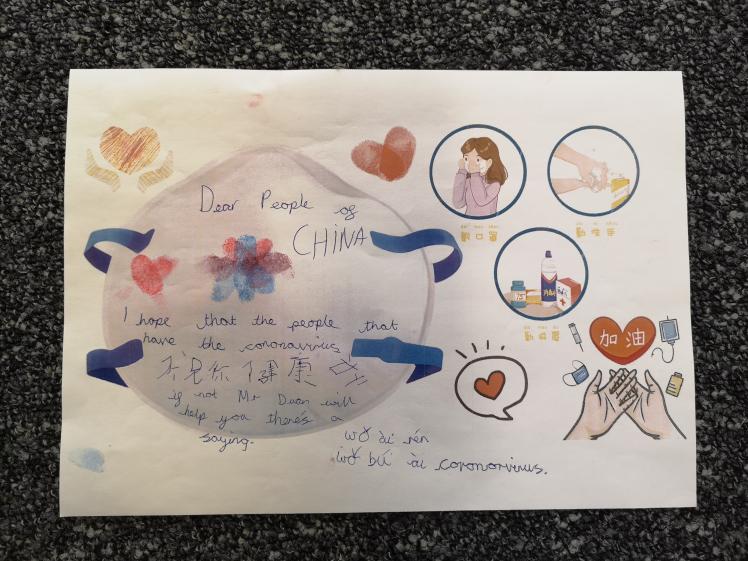 Dear People of
CHINA
I hope that the people that
have the coronavirus
你 健康
if not Mr Duan will
help you there's a
saying.
wǒ ài rén
wǒ bú ài coronorvirus.
戴口罩
勤洗手
勤
加油